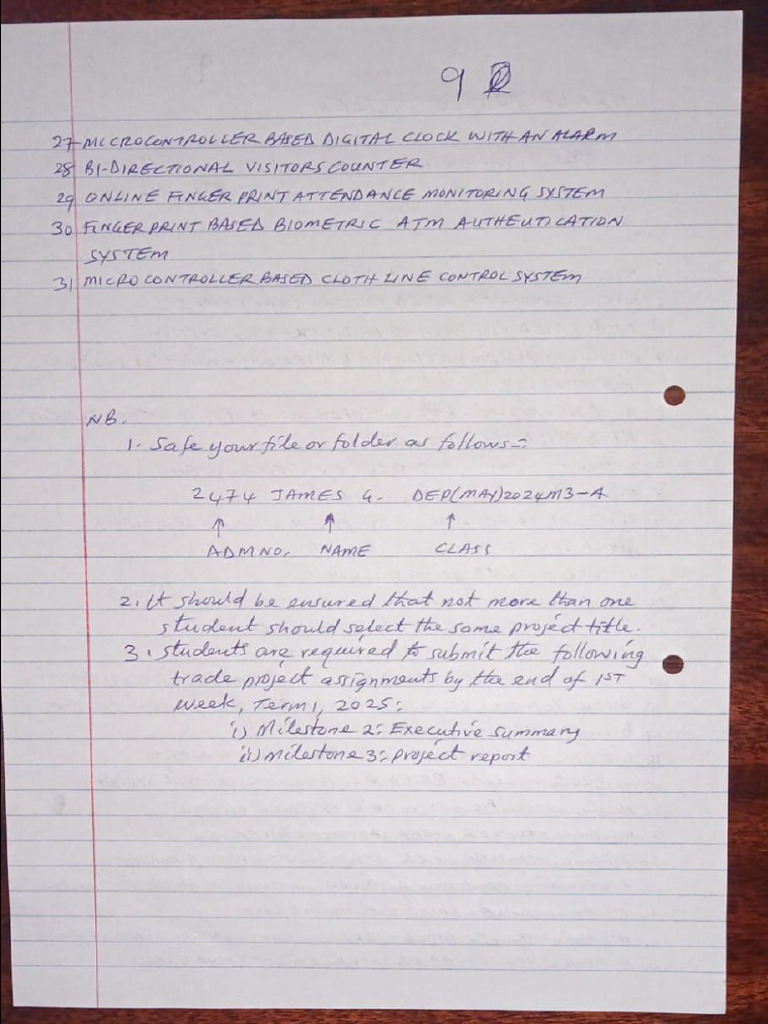 9
27 MICROCONTROLLER BASED DIGITAL CLOCK WITH AN ALARM
28 BI-DIRECTIONAL VISITORS COUNTER
29 ONLINE FINGER PRINT ATTENDANCE MONITORING SYSTEM
30 FINGERPRINT BASED BIOMETRIC ATM AUTHEUTICATION
SYSTEM
31 MICROCONTROLLER BASED CLOTH LINE CONTROL SYSTEM
NB.
1- Safe your file or folder as follows:-
2474 JAMES G. DEP(MAY)2024M3-A
↑ ↑ ↑
ADMNO. NAME CLASS
2. It should be ensured that not more than one
student should select the same project title.
3. students are required to submit the following
trade project assignments by the end of 1ST
week, Term1, 2025:
i) Milestone 2: Executive summary
ii) milestone 3: project report